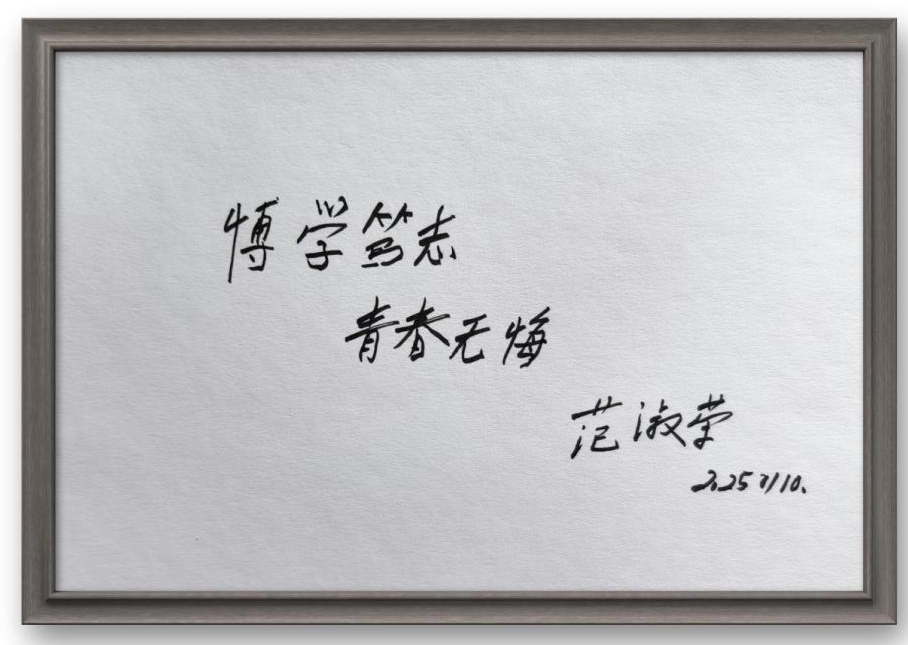 博学笃志
青春无悔
范淑荣
2025 7/10.